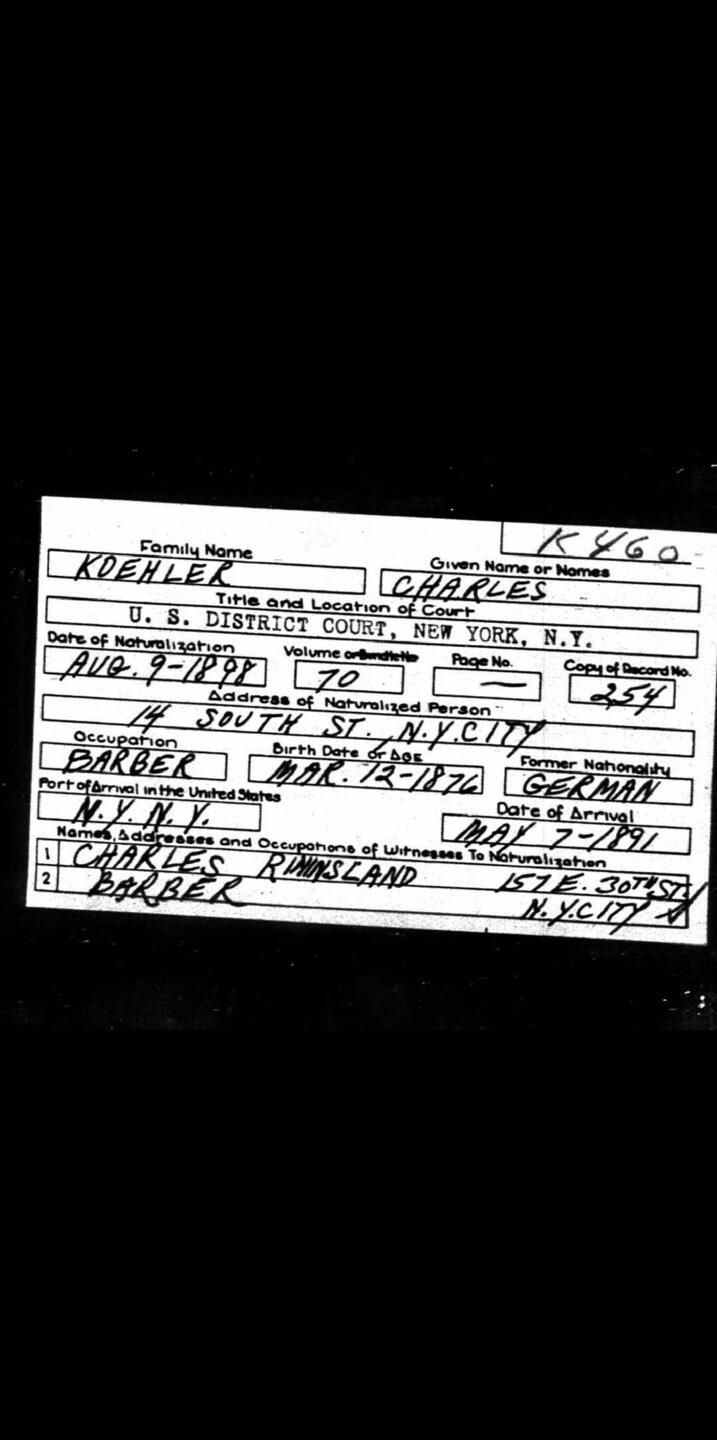 K460
Family Name
Given Name or Names
KOEHLER
CHARLES
Title and Location of Court
U. S. DISTRICT COURT, NEW YORK, N.Y.
Date of Naturalization
Volume or Bundle No
Page No.
Copy of Record No.
AUG. 9-1898
70
—
254
Address of Naturalized Person
14 SOUTH ST., N.Y.CITY
Occupation
Birth Date or Age
Former Nationality
BARBER
MAR. 12-1876
GERMAN
Port of Arrival in the United States
Date of Arrival
N.Y. N.Y.
MAY 7-1891
Names, Addresses and Occupations of Witnesses To Naturalization
1 CHARLES 157 E. 30TH ST.
2 BARBER N.Y.CITY